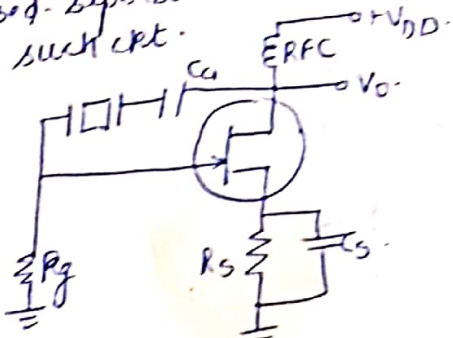 such ckt.
+VDD.
RFC
Cc
Vo.
Rg
Rs
Cs.